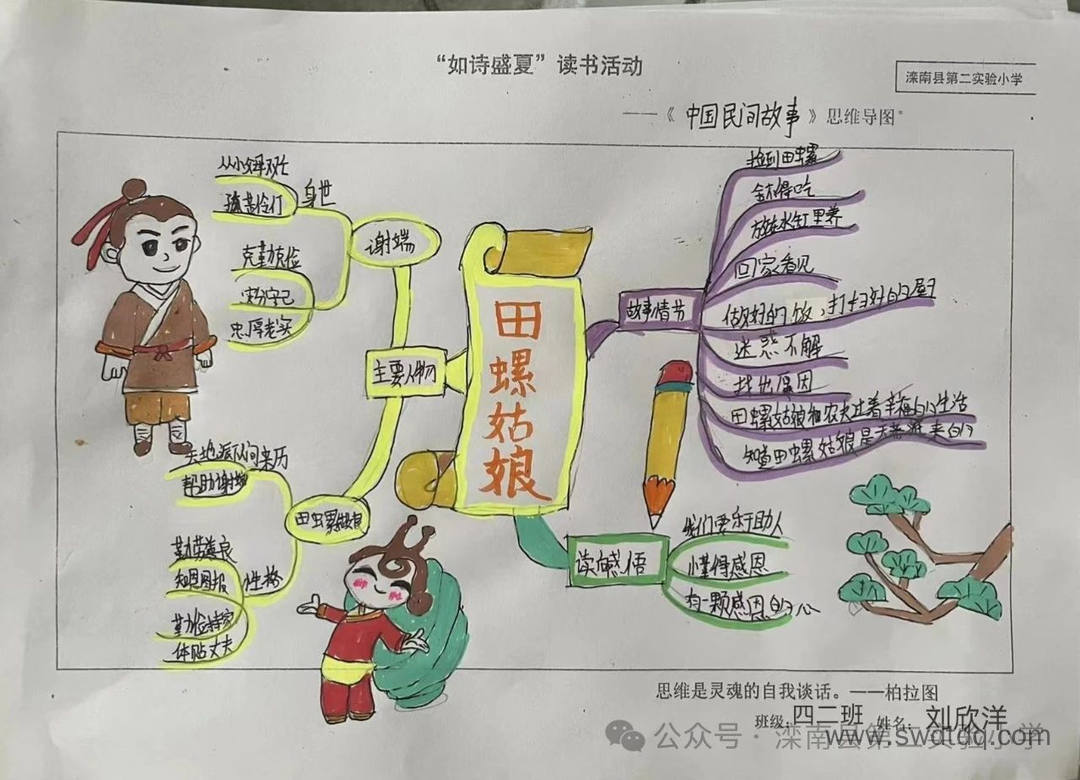 “如诗盛夏”读书活动
滦南县第二实验小学
——《中国民间故事》思维导图
田螺姑娘
主要人物
谢端
身世
从小父母双亡
孤苦伶仃
克勤克俭
安分守己
忠厚老实
田螺姑娘
来历
帮助谢端
性格
勤劳善良
知恩图报
勤俭持家
体贴丈夫
故事情节
捡到田螺
舍不得吃
放在水缸里养
回家看见
做好的饭,打扫好的屋
迷惑不解
找出原因
田螺姑娘和农夫过着幸福的生活
知道田螺姑娘是天帝派来的
读后感悟
我们要乐于助人
懂得感恩
有一颗感恩的心
思维是灵魂的自我谈话。——柏拉图
班级:四二班 姓名:刘欣洋
公众号·滦南县第二实验小学
www.swdtdq.com